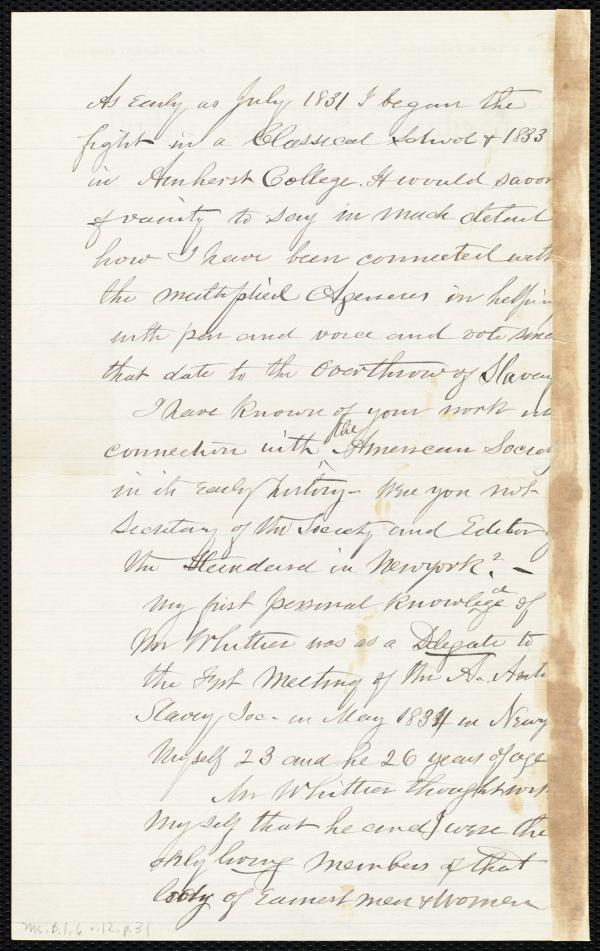 As early as July 1831 I began the
fight in a Classical School & 1833
in Amherst College. It would savor
of vanity to say in much detail
how I have been connected with
the multiplied Agencies in helpin
with pen and voice and vote since
that date to the Overthrow of Slavery
I have known of your work in
connection with the American Society
in its early history - Were you not
Secretary of the Society and Editor of
the Standard in Newyork? -
My first personal knowledge of
Mr Whittier was as a Delegate to
the First Meeting of the A. Anti
Slavery Soc - in May 1834 in Newy
Myself 23 and he 26 years of age
Mr Whittier thought with
myself that he and I were the
only living members of that
body of Earnest men & Women
Ms. B. 1. 6 v. 12, p. 31